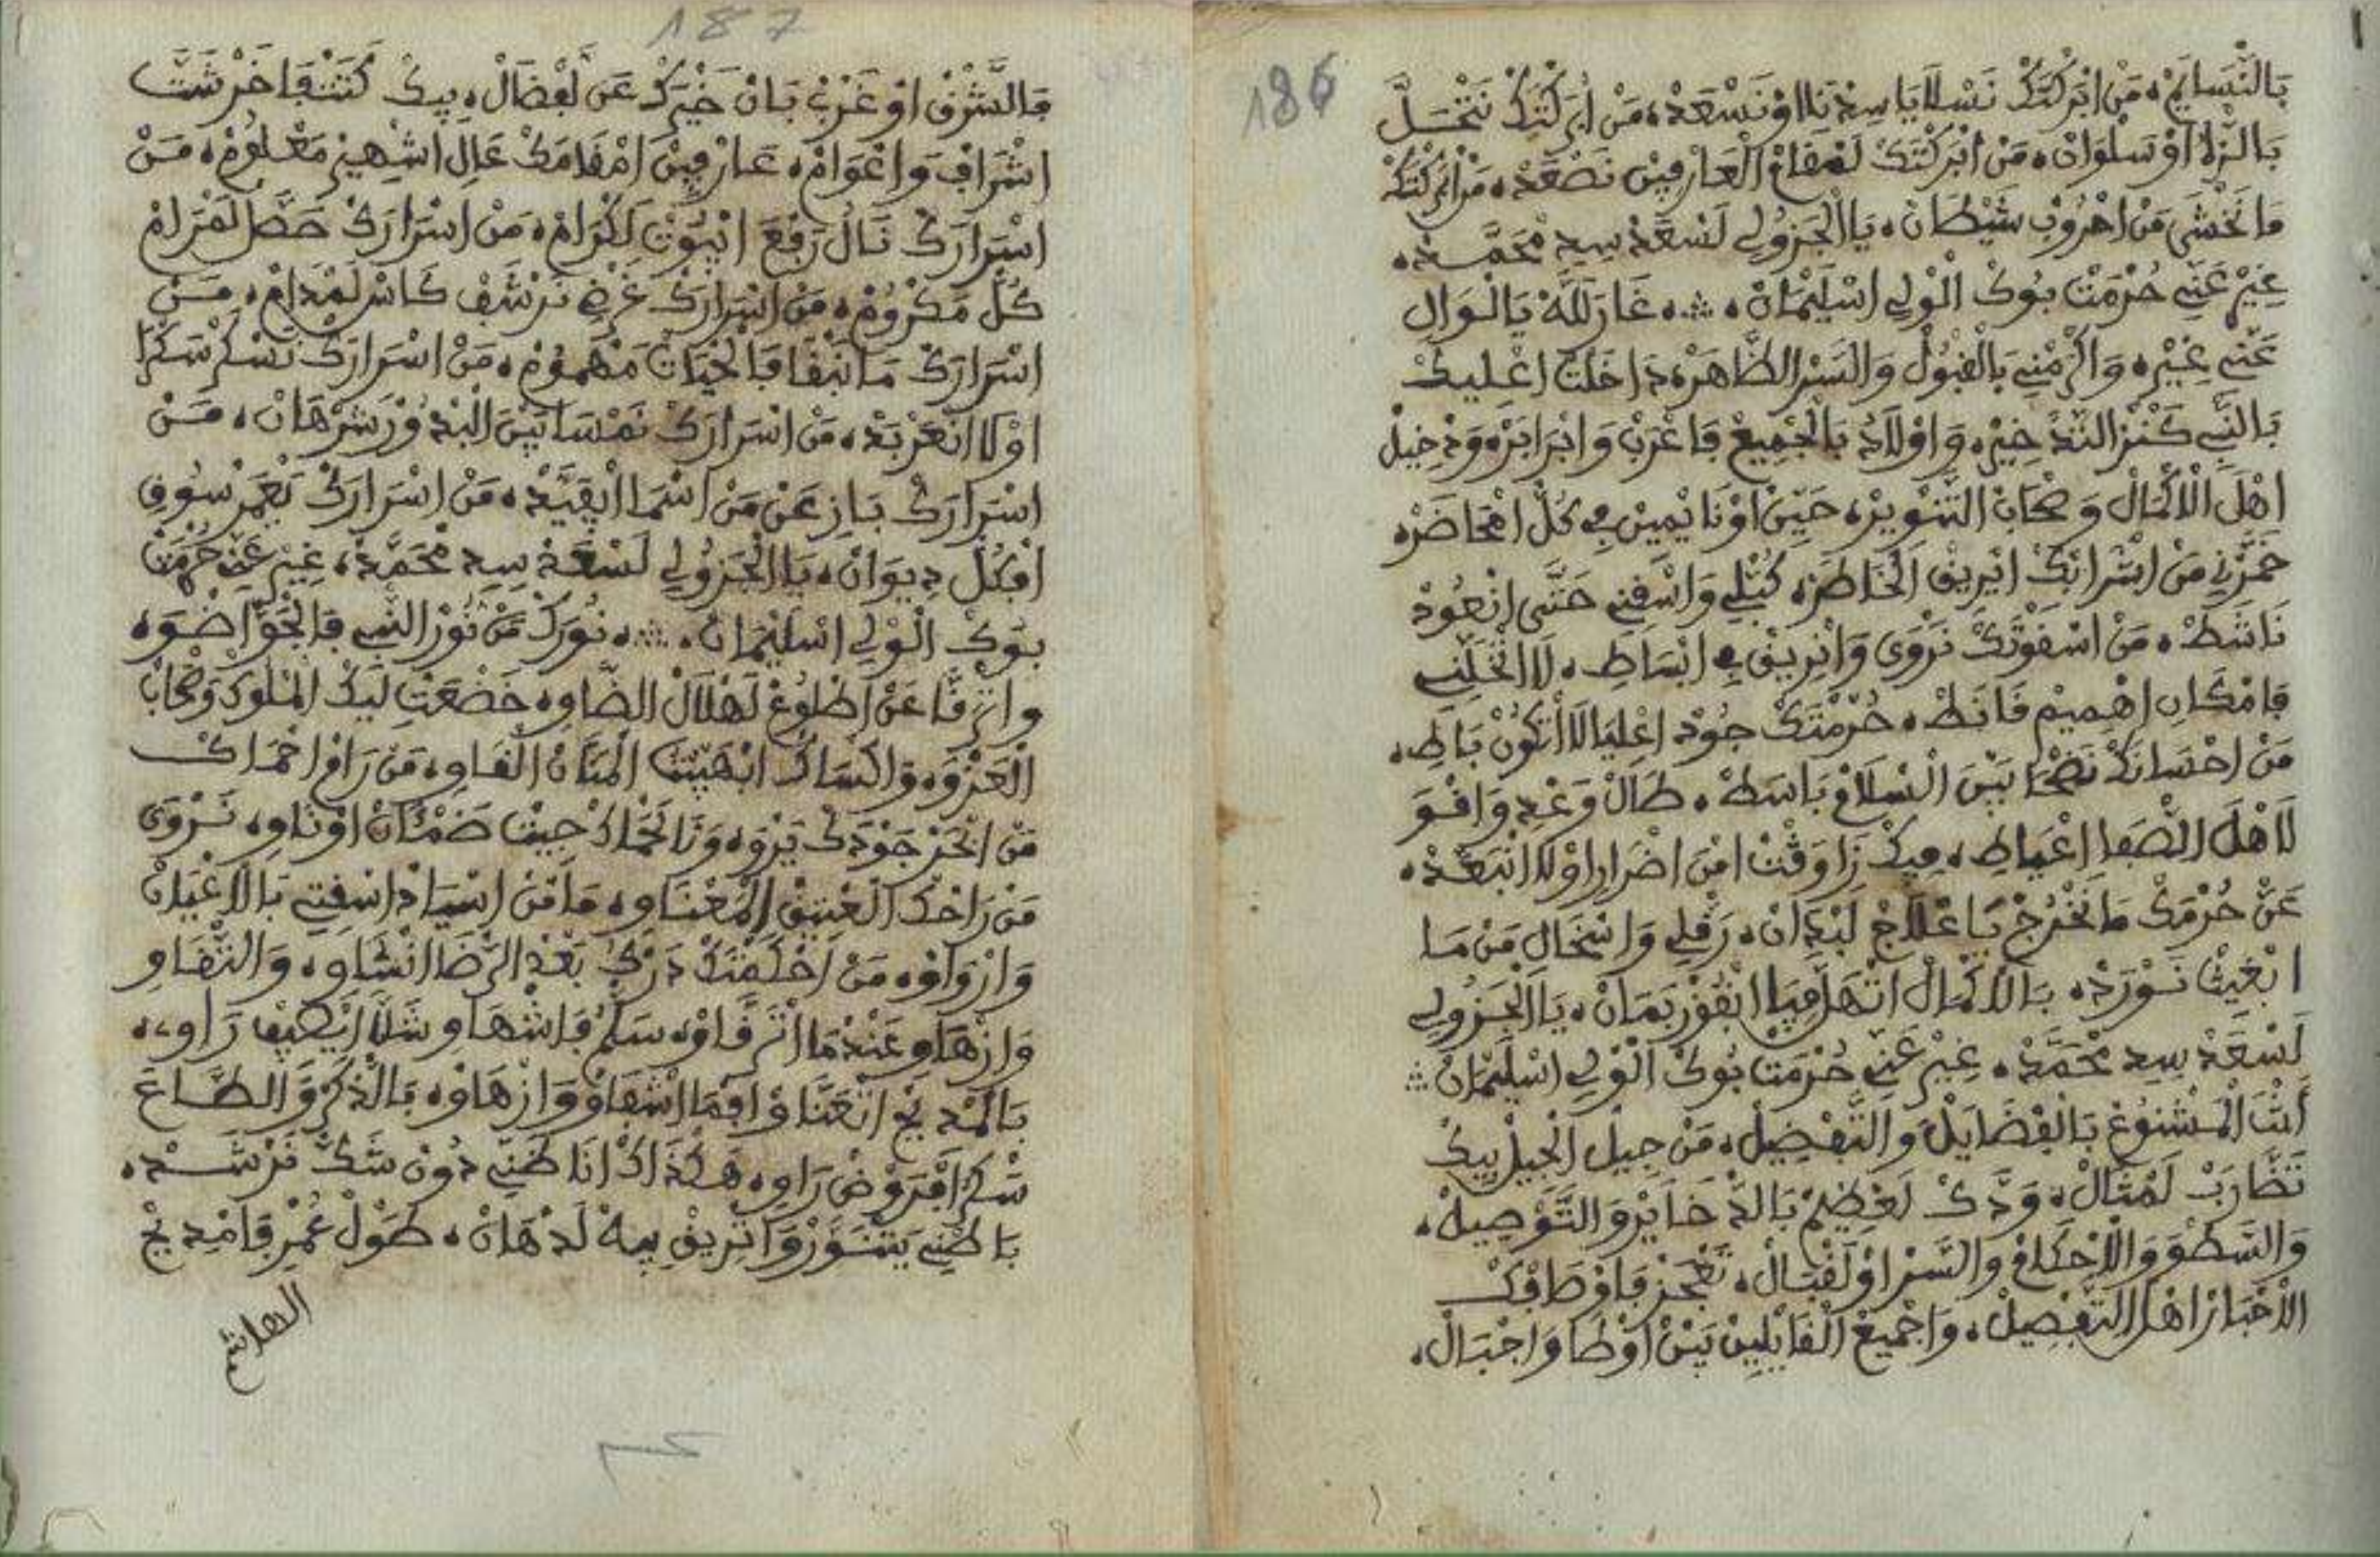 186
بَالنَّسَايَمْ، مَنْ ابَّرْكْتَكْ نَسْلَا يَا سِيدْنَا اوْ نَسْعَدْ، مَنْ ابَّرْكْتَكْ نَتْحَلَّ
بَالرّْلَا اوْ سَلْوَانْ، مَنْ ابَّرْكْتَكْ لَمْقَامْ الْعَارْفِينْ نَصْعَدْ، مَنْ ابَّرْكْتَكْ
مَا نَخْشَى مَنْ احْرُوبْ شَيْطَانْ، يَا الْجَزُولِي لَسْعَدْ سِيدِ مْحَمَّدْ،
غِيرْ عَنِّي حُرْمَتْ بُوكْ الْوَلِي اسْلِيمَانْ، ؞، غَارَ للَّهْ يَا الْوَالِ
عَنِّي غِيرْ، وَاكْرَمْنِي بَالْقْبُولْ وَالسَّرْ الظَّاهَرْ، دَاخَلْتْ اعْلِيكْ
بَالنَّبِي كَنْزْ التَّدْخِيرْ، وَاوْلَادُ بَالْجْمِيعْ فَاعْرَبْ وَابْرَابَرْ، وَدْخِيلْ
اهْلَ الْاكْمَالْ وَصْحَابْ التَّنْوِيرْ، حَيِّينْ اوْ نَايْمِينْ فِي كُلّْ امْحَاضَرْ،
خَمَّرْنِي مَنْ اشْرَابَكْ ايْرِيقْ الْخَاطَرْ، كُبّْلِي وَاسْقِنِي حَتَّى انْعُودْ
نَاشَطْ، مَنْ اسْقَوْتَكْ نَرْوَى وَانْرِيقْ فِي ابْسَاطِ، لَا اتْخَلِّنِي
فَامْكَانِ اهْمِيمْ قَانَطْ، حُرْمْتَكْ جُودْ اعْلِيَا لَا اتْكُونْ بَاطِ،
مَنْ احْسَانَكْ نَضْحَا بَيْنْ الْسْلَامْ بَاسَطْ، طَالْ وَعْدِ وَاقْوَ
لَاهْلَ الصّْفَا اعْيَاطِ، فِيكْ زَاوَقْتْ امْنْ اضْرَارِ اوْلَا انْبَعَّدْ،
عَنْ حُرْمَكْ مَا نَخْرُجْ يَا عْلَاجْ لَبْدَانْ، رَقّْلِي وَاسْخَالِ مَنْ مَا
ابْغِيتْ نَوْرَدْ، بَالْاكْمَالْ اتْهَلَّ فِيَّا انْفُوزْ بَمَانْ، يَا الْجَزُولِي
لَسْعَدْ سِيدِ مْحَمَّدْ، غِيرْ عَنِّي حُرْمَتْ بُوكْ الْوَلِي اسْلِيمَانْ ؞
أَنْتَ الْمَشْنُوعْ بَالْفْضَايَلْ وَالتَّفْضِيلْ، مَنْ جِيلْ الْجِيلْ بِيكْ
تَضَّارَبْ لَمْثَالْ، وَدَّكْ لَعْظِيمْ بَالذّْخَايَرْ وَالتَّوْصِيلْ،
وَالسَّطْوَ وَالْاحْكَامْ وَالسَّرْ اوْ لَقْبَالْ، تَعْجَزْ فَاوْصَافَكْ
الْاحْبَارْ اهْلْ التَّفْصِيلْ، وَاجْمِيعْ الْقَايْلِينْ بَيْنْ اوْطَا وَاجْبَالْ،
187
فَالشَّرْقْ اوْ غَرْبْ بَانْ خَيْرَكْ عَنْ لَفْضَالْ، بِيكْ كَتَّنْفَاخَرْ شَتَّ
اشْرَافْ وَاعْوَامْ، عَارْفِينْ امْقَامَكْ عَالِ اشْهِيرْ مَعْلُومْ، مَنْ
اسْرَارَكْ نَالْ رَفْعَ انْبُوتْ لَكْرَامْ، مَنْ اسْرَارَكْ حَصَّلْ لَمْرَامْ
كُلّْ مَكْرُومْ، مَنْ اسْرَارَكْ غَرْضِي نَرْشَفْ كَاسْ لَمْدَامْ، مَنْ
اسْرَارَكْ مَا نَبْقَا فَالْحْيَاتْ مَهْمُومْ، مَنْ اسْرَارَكْ نَسْكَرْ سَكْرَا
اوْلَا انْعَرْبَدْ، مَنْ اسْرَارَكْ نَمْسَا بَيْنْ الْبْدُورْ شَرْهَانْ، مَنْ
اسْرَارَكْ بَازِ عَنْ مَنْ اسْمَا ايْقَيَّدْ، مَنْ اسْرَارَكْ يَعْمَرْ سُوقِ
افْكُلْ دِيوَانْ، يَا الْجَزُولِي لَسْعَدْ سِيدِ مْحَمَّدْ، غِيرْ عَنِّي حُرْمَتْ
بُوكْ الْوَلِي اسْلِيمَانْ، ؞، نُورَكْ مَنْ نُورْ النَّبِي فَالْجَوّْ اضْوَ،
وَاتْرَقَّا عَنْ اطْلُوعْ لَهْلَالْ الضَّاوِ، خَضْعَتْ لِيكْ الْمْلُوكْ وَصْحَابْ
الْعَزْوَ، وَاكْسَاكْ ابْهِيبْتُ الْمَنَّانْ الْقَاوِ، مَنْ رَامْ احْمَاكْ
مَنْ ابْحَرْ جَوْدَكْ يَرْوَ، وَنَا لَحْمَاكْ جِيتْ ضَمْئَانْ اوْ ثَاوِ، نَرْوَى
مَنْ رَاحَكْ الْعْتِيقْ الْمَعْنَاوِ، مَا مَنْ اسْيَادْ اسْقِتِي بَالْاعْيَانْ
وَارْوَاوْ، مَنْ احْكَمْتَكْ دَرْكُ بَعْدْ الرّْضَا انْشَاوِ، وَالتّْقَاوِ
وَازْهَاوِ عَنْدْمَا اتْرَقَّاوْ، سَلَّمْ فَاشْهَاوِ شَلَّا ايْصِيفْ رَاوِي،
بَالْمْدِيحْ اتْغَنَّاوْ افْمَا اشْفَاوْ وَازْهَاوْ، بَالذَّكْرْ وَالطَّاعَ
سَكْرْ افْرَوْضْ رَاوِ، هَكْذَاكْ انَا ظَنِّي دُونْ شَكّْ نَرْشَدْ،
بَاطْنِي يَتْنَوَّرْ وَاتْرِيقْ بِيهْ لَدْهَانْ، طَوْلْ عُمْرِ فَامْدِيحْ
الهاشمي